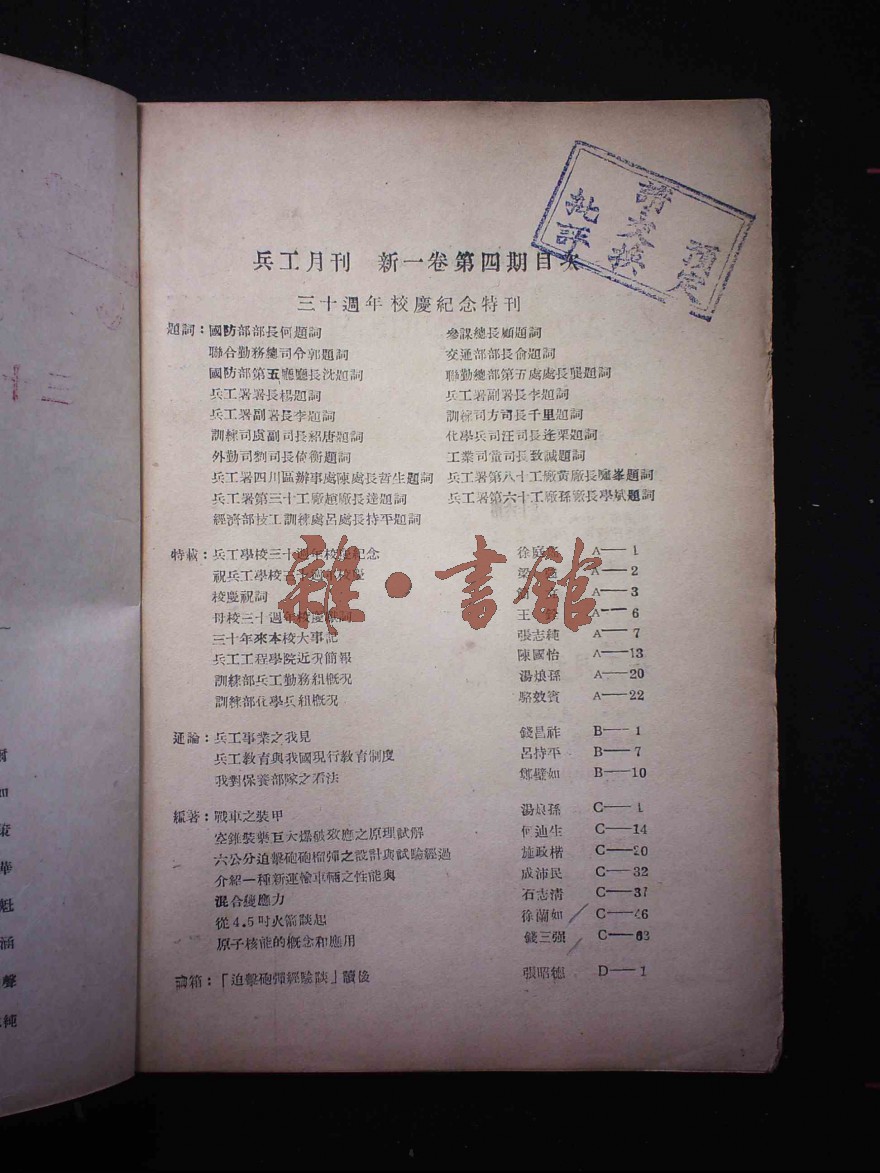 預定
請交換
批評
兵工月刊 新一卷第四期目次
三十週年校慶紀念特刊
題詞：國防部部長何題詞 參謀總長顧題詞
聯合勤務總司令郭題詞 交通部部長俞題詞
國防部第五廳廳長沈題詞 聯勤總部第五處處長龔題詞
兵工署署長楊題詞 兵工署副署長李題詞
兵工署副署長李題詞 訓練司方司長千里題詞
訓練司虞副司長紹唐題詞 化學兵司汪司長逢栗題詞
外勤司劉司長倚衡題詞 工業司童司長致諴題詞
兵工署四川區辦事處陳處長哲生題詞 兵工署第八十工廠黃廠長題詞
兵工署第三十工廠趙廠長達題詞 兵工署第六十工廠孫廠長學斌題詞
經濟部技工訓練處呂處長持平題詞
特載：兵工學校三十週年校慶紀念 徐庭 A—1
祝兵工學校三十週年校慶 梁 A—2
校慶祝詞 A—3
母校三十週年校慶 詞 王 A—6
三十年來本校大事記 張志純 A—7
兵工工程學院近況簡報 陳國怡 A—13
訓練部兵工勤務組概況 湯烺孫 A—20
訓練部化學兵組概況 駱效賓 A—22
通論：兵工事業之我見 錢昌祚 B—1
兵工教育與我國現行教育制度 呂持平 B—7
我對保養部隊之看法 鄭璧如 B—10
編著：戰車之裝甲 湯烺孫 C—1
空錐裝藥巨大爆破效應之原理試解 何迪生 C—14
六公分迫擊砲砲榴彈之設計與試驗經過 施政楷 C—20
介紹一種新運輸車輛之性能與 成沛民 C—32
混合變應力 石志清 C—37
從4.5吋火箭談起 徐蘭如 C—46
原子核能的概念和應用 錢三强 C—63
論箱：「迫擊砲彈經驗談」讀後 張昭德 D—1
雜·書館
三十
爾
如
華
魁
涵
聲
純